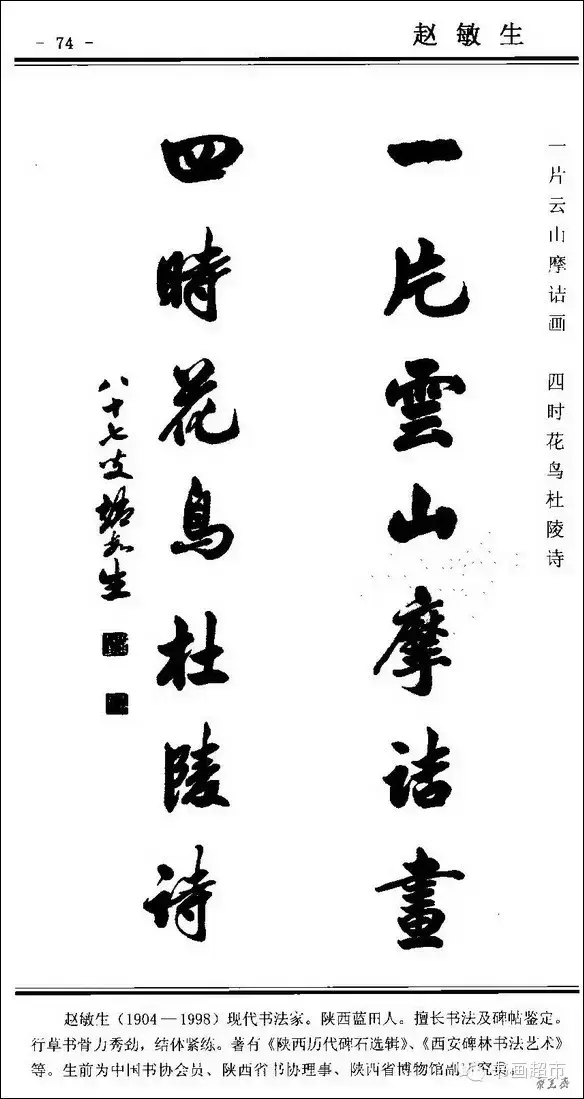 - 74 -
赵敏生
一片云山摩诘画 四时花鸟杜陵诗
一片雲山摩詰畫
四時花鳥杜陵詩
八十七叟趙敏生
赵敏生(1904—1998)现代书法家。陕西蓝田人。擅长书法及碑帖鉴定。
行草书骨力秀劲，结体紧练。著有《陕西历代碑石选辑》、《西安碑林书法艺术》
等。生前为中国书协会员、陕西省书协理事、陕西省博物馆副研究员。
书画超市